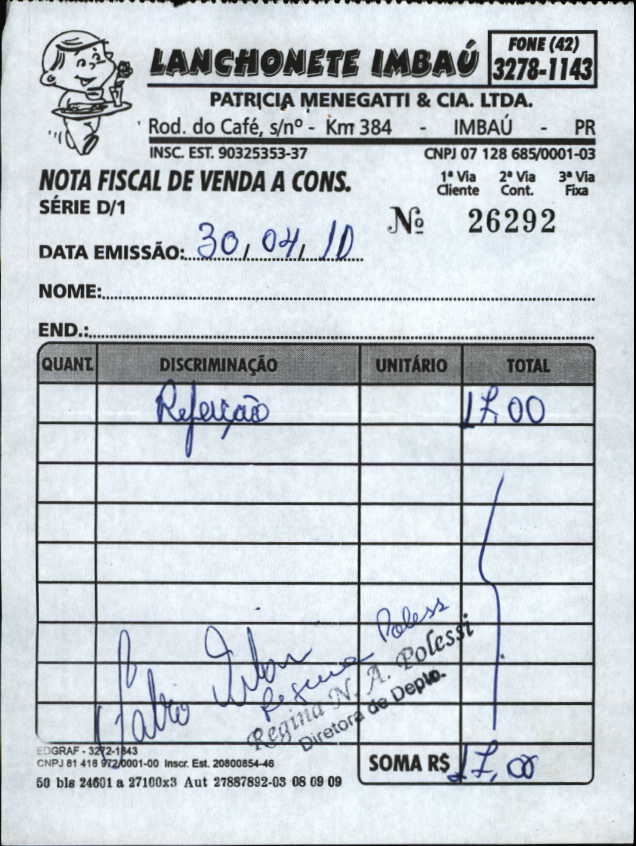 LANCHONETE IMBAÚ
FONE (42)
3278-1143
PATRICIA MENEGATTI & CIA. LTDA.
Rod. do Café, s/nº - Km 384 - IMBAÚ - PR
INSC. EST. 90325353-37 CNPJ 07 128 685/0001-03
NOTA FISCAL DE VENDA A CONS.
1ª Via Cliente 2ª Via Cont. 3ª Via Fixa
SÉRIE D/1
Nº 26292
DATA EMISSÃO: 30, 04, 10
NOME:
END.:
QUANT. DISCRIMINAÇÃO UNITÁRIO TOTAL
Refeição 17,00
Fabio
Regina Poless
Regina N. A. Polessi
Diretora de Depto.
EDGRAF - 3272-1843
CNPJ 81 418 972/0001-00 Inscr. Est. 20800854-46
50 bls 24601 a 27100x3 Aut 27887892-03 08 09 09
SOMA R$ 17,00